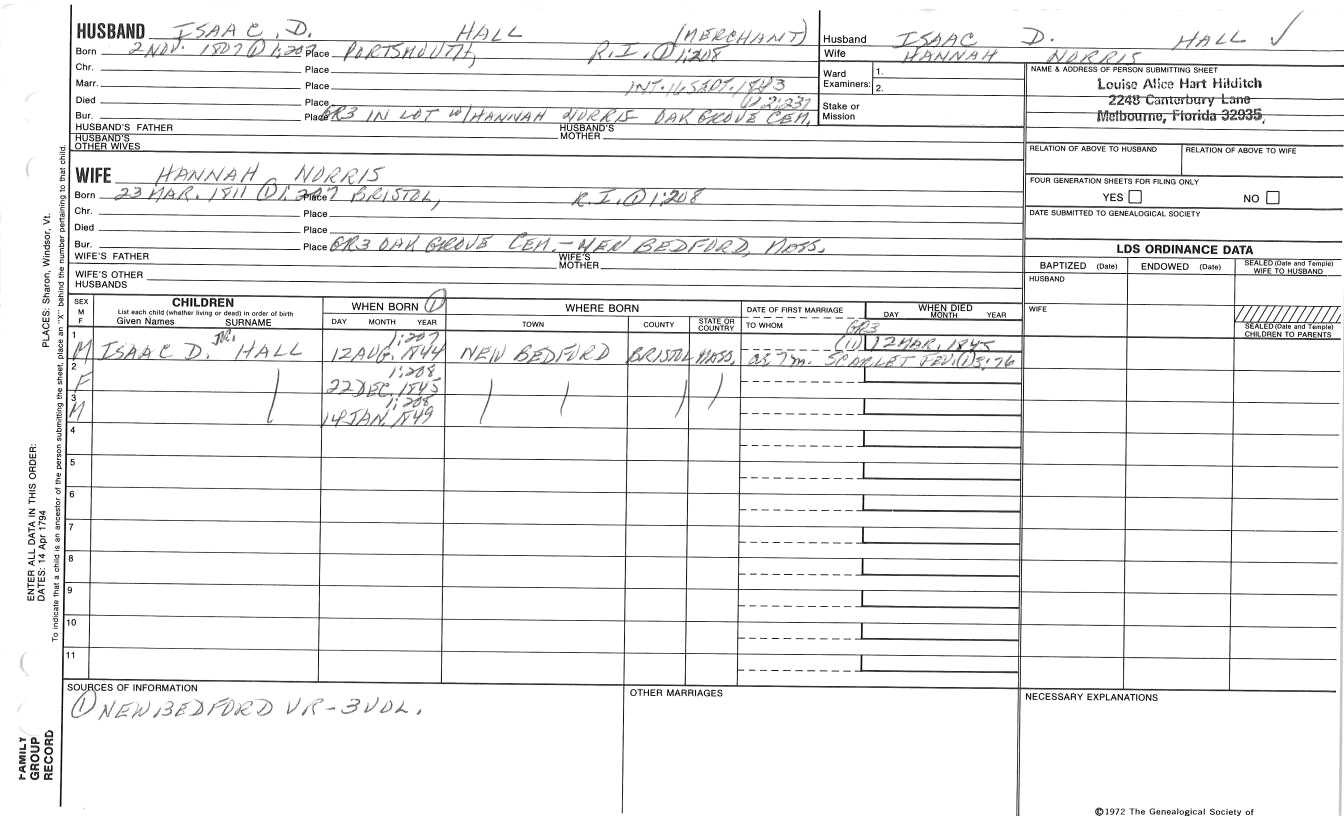 HUSBAND ISAAC D. HALL (MERCHANT)
Born 2 NOV. 1807 ① 1:207 Place PORTSMOUTH, R.I. ① 1:208
Chr. Place
Marr. Place INT. 16 SEPT. 1843
Died Place ① 2:237
Bur. Place GR3 IN LOT W/HANNAH NORRIS OAK GROVE CEM.
HUSBAND'S FATHER HUSBAND'S MOTHER
HUSBAND'S OTHER WIVES
Husband ISAAC D. HALL ✓
Wife HANNAH NORRIS
Ward Examiners: 1. 2.
Stake or Mission
NAME & ADDRESS OF PERSON SUBMITTING SHEET
Louise Alice Hart Hilditch
2248 Canterbury Lane
Melbourne, Florida 32935
RELATION OF ABOVE TO HUSBAND RELATION OF ABOVE TO WIFE
FOUR GENERATION SHEETS FOR FILING ONLY
YES ☐ NO ☐
DATE SUBMITTED TO GENEALOGICAL SOCIETY
WIFE HANNAH NORRIS
Born 23 MAR. 1811 ① 1:207 Place BRISTOL, R.I. ① 1:208
Chr. Place
Died Place
Bur. Place GR3 OAK GROVE CEM. - NEW BEDFORD, MASS.
WIFE'S FATHER WIFE'S MOTHER
WIFE'S OTHER HUSBANDS
LDS ORDINANCE DATA
BAPTIZED (Date) ENDOWED (Date) SEALED (Date and Temple) WIFE TO HUSBAND
HUSBAND
WIFE
SEALED (Date and Temple) CHILDREN TO PARENTS
SEX M F
CHILDREN
List each child (whether living or dead) in order of birth
Given Names SURNAME
WHEN BORN ①
DAY MONTH YEAR
WHERE BORN
TOWN COUNTY STATE OR COUNTRY
DATE OF FIRST MARRIAGE
TO WHOM
WHEN DIED
DAY MONTH YEAR
1 M ISAAC D. JR. HALL 1:207 12 AUG. 1844 NEW BEDFORD BRISTOL MASS. GR3 (1) 12 MAR. 1845
a5 7m. SCARLET FEV. (1) 3:76
2 F 1:208 22 DEC. 1845
3 M 1:208 14 JAN. 1849
4
5
6
7
8
9
10
11
SOURCES OF INFORMATION
① NEW BEDFORD VR - 3 VOL.
OTHER MARRIAGES
NECESSARY EXPLANATIONS
©1972 The Genealogical Society of
PLACES: Sharon, Windsor, Vt.
ENTER ALL DATA IN THIS ORDER:
DATES: 14 Apr 1794
To indicate that a child is an ancestor of the person submitting the sheet, place an "X" behind the number pertaining to that child.
FAMILY
GROUP
RECORD